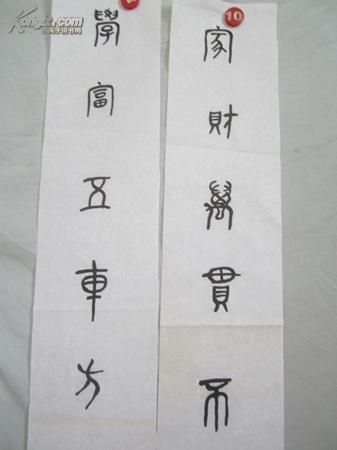 家財萬貫不
學富五車方
10